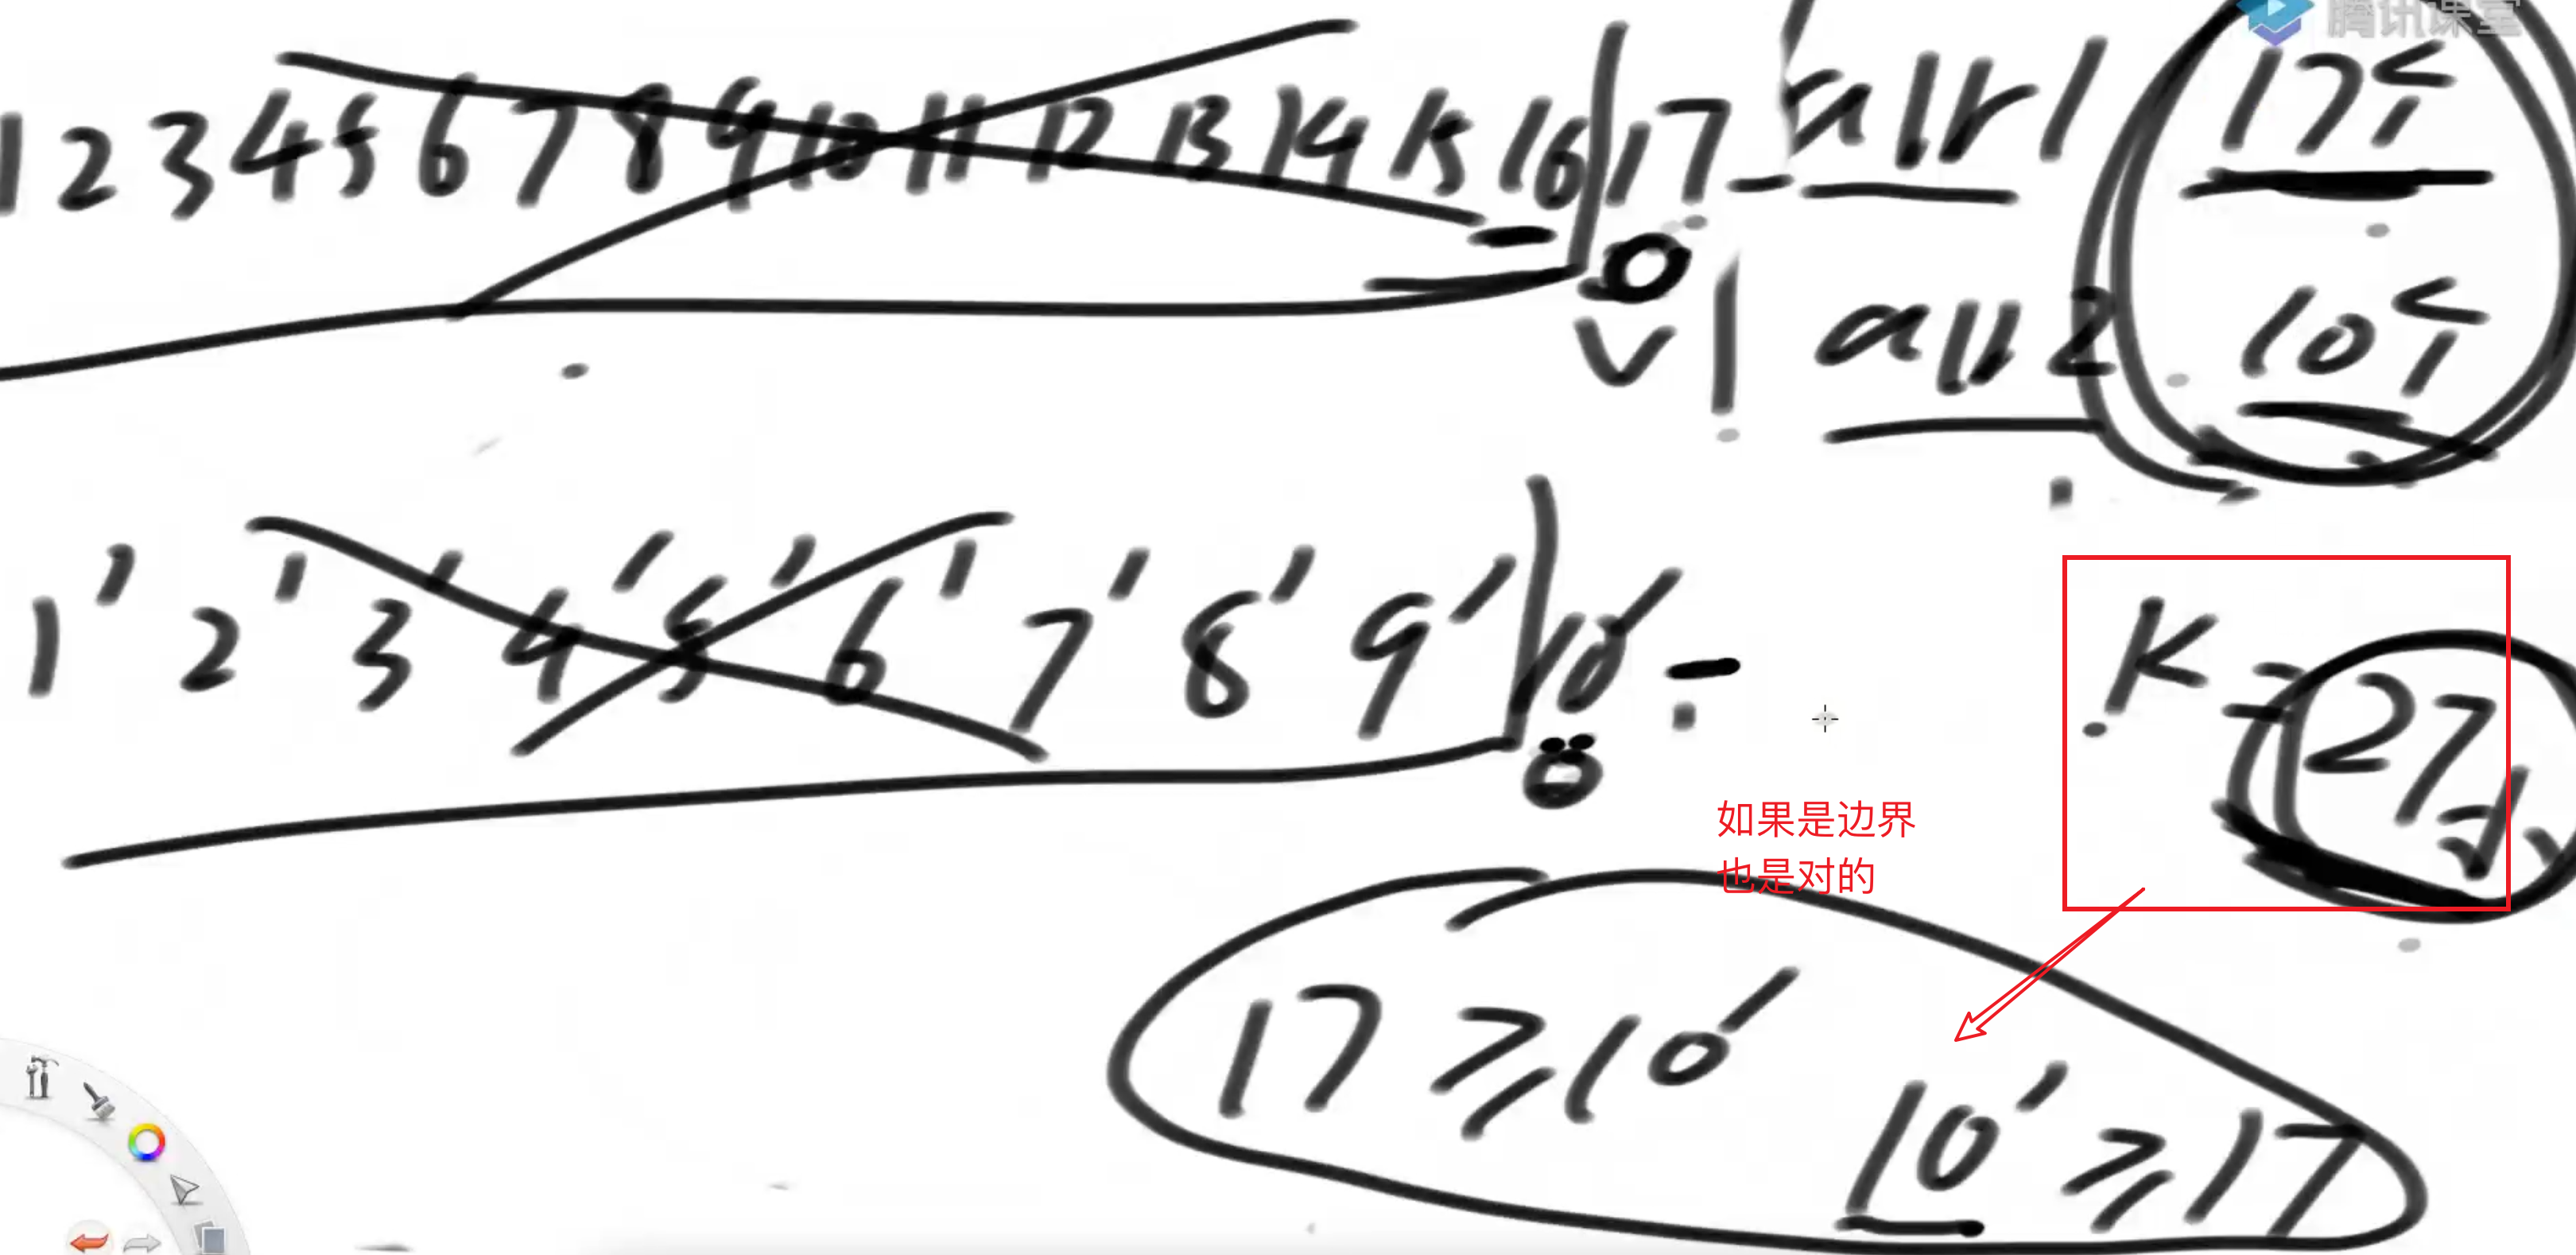 腾讯课堂
1 2 3 4 5 6 7 8 9 10 11 12 13 14 15 16 17 arr1 17个
0
arr2 10个
1' 2' 3' 4' 5' 6' 7' 8' 9' 10'
K = 27
如果是边界
也是对的
17 ≥ 10'
10' ≥ 17